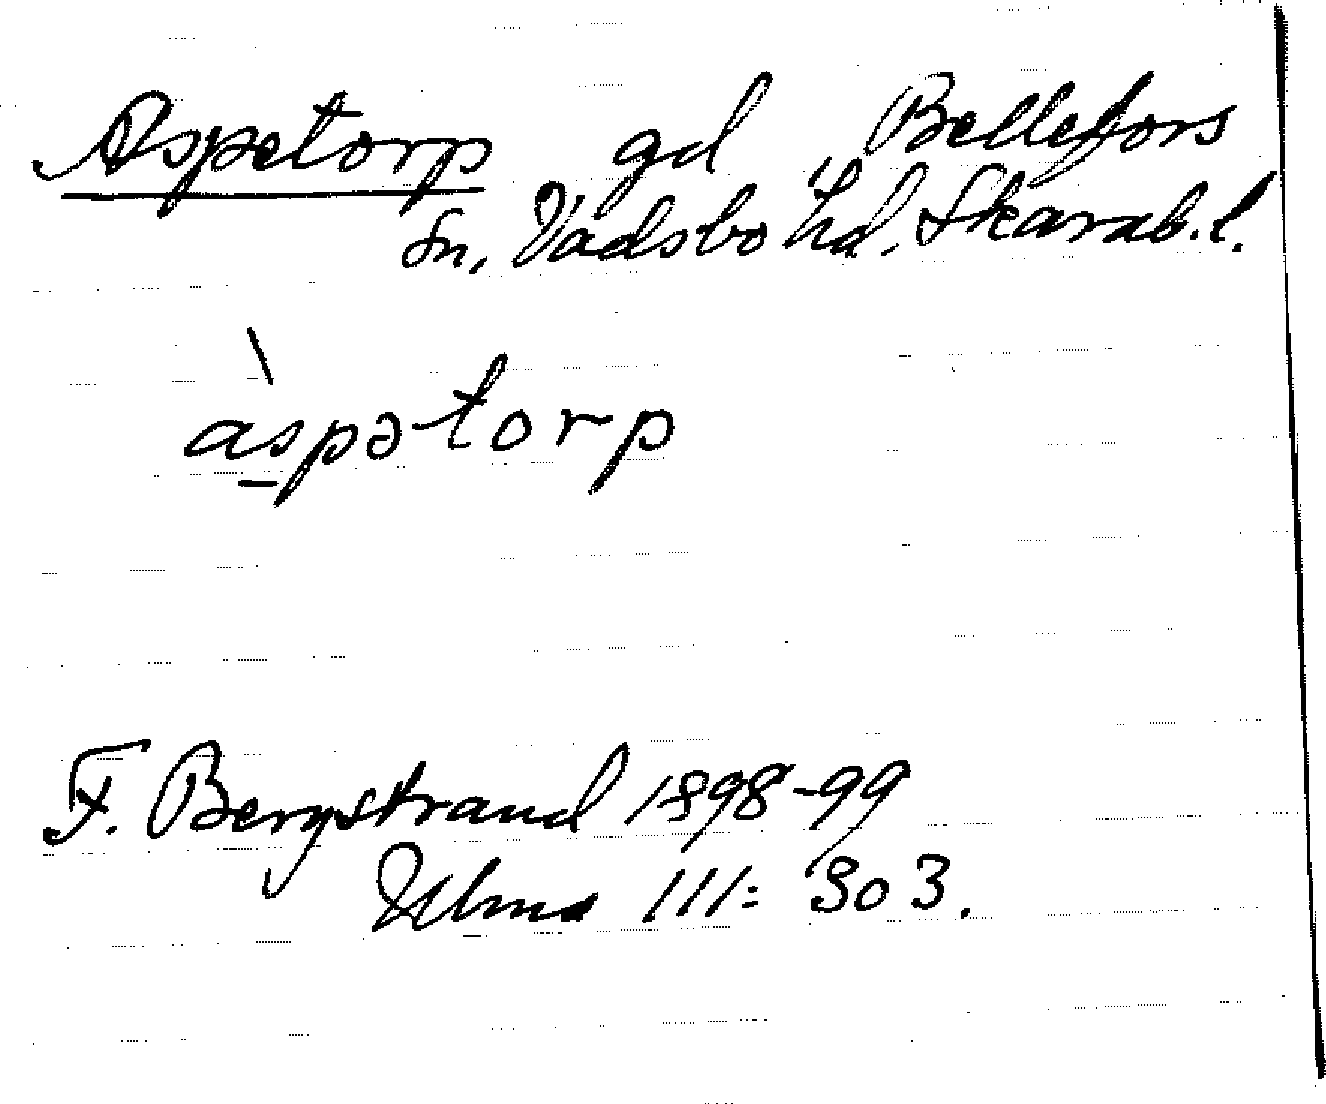 Aspetorp gd Bellefors
Sn, Vadsbo hd. Skarab.l.
àspətorp
F. Bergstrand 1898-99
Ulma 111: 303.